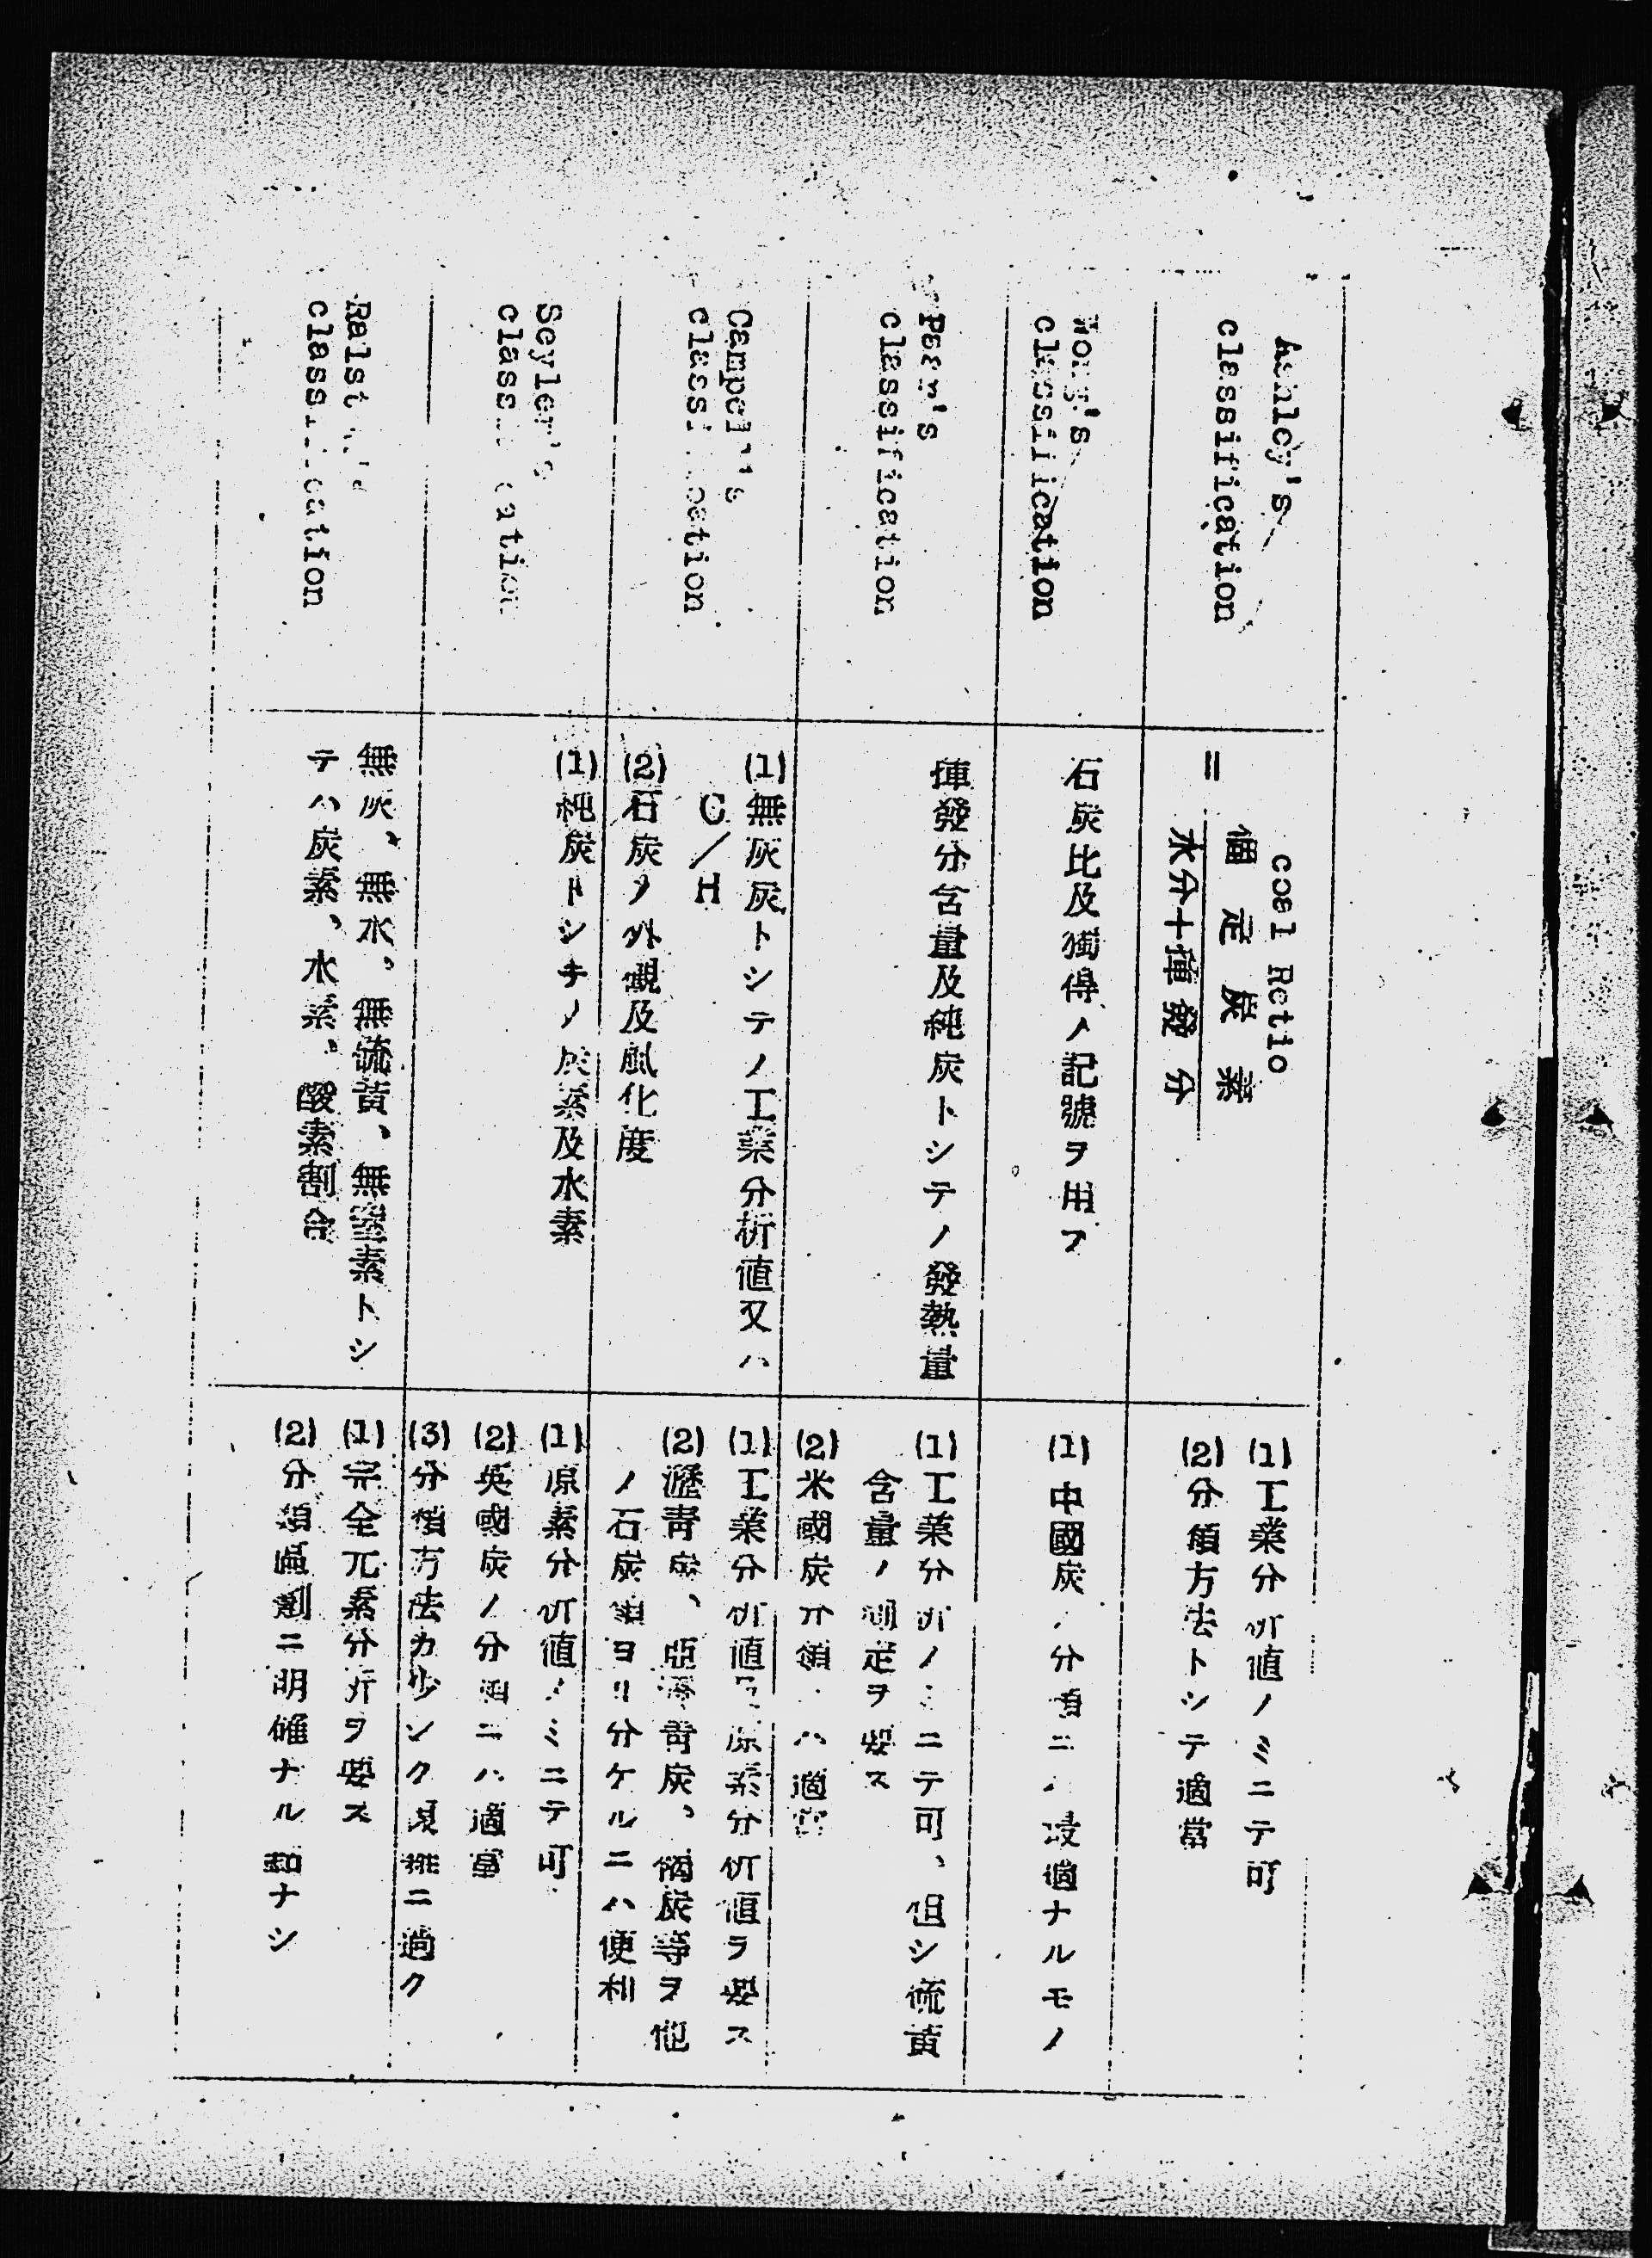 Ashley's
classification
coal Ratio
= 個定炭素
水分+揮發分
(1)工業分析値ノミニテ可
(2)分類方法トシテ適當
Wong's
classification
石炭比及獨得ノ記號ヲ用フ
(1)中國炭ノ分類ニハ最適ナルモノ
Parr's
classification
揮發分含量及純炭トシテノ發熱量
(1)工業分析ノミニテ可、但シ硫黄
含量ノ測定ヲ要ス
(2)米國炭分類ニハ適當
Campel's
classification
(1)無灰炭トシテノ工業分析値又ハ
C/H
(2)石炭ノ外觀及風化度
(1)工業分析値及原素分析値ヲ要ス
(2)瀝靑炭、亞瀝靑炭、褐炭等ヲ他
ノ石炭類ヨリ分ケルニハ便利
Seyler's
classification
(1)純炭トシテノ炭素及水素
(1)原素分析値ノミニテ可
(2)英國炭ノ分類ニハ適當
(3)分類方法カ少シク複雜ニ過ク
Ralston's
classification
無灰、無水、無硫黄、無窒素トシ
テハ炭素、水素、酸素割合
(1)完全元素分析ヲ要ス
(2)分類區劃ニ明確ナル點ナシ